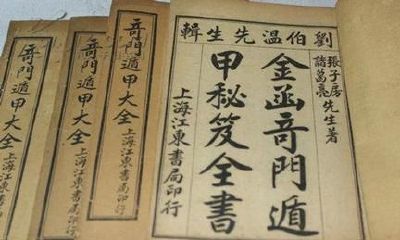 劉伯温先生輯
張子房
諸葛亮先生著
金函竒門遁
甲秘笈全書
上海江東書局印行
竒門遁甲大全
上海江東書局印行
竒門遁甲大全
上海江東書局印
竒門遁甲大全
上海江東